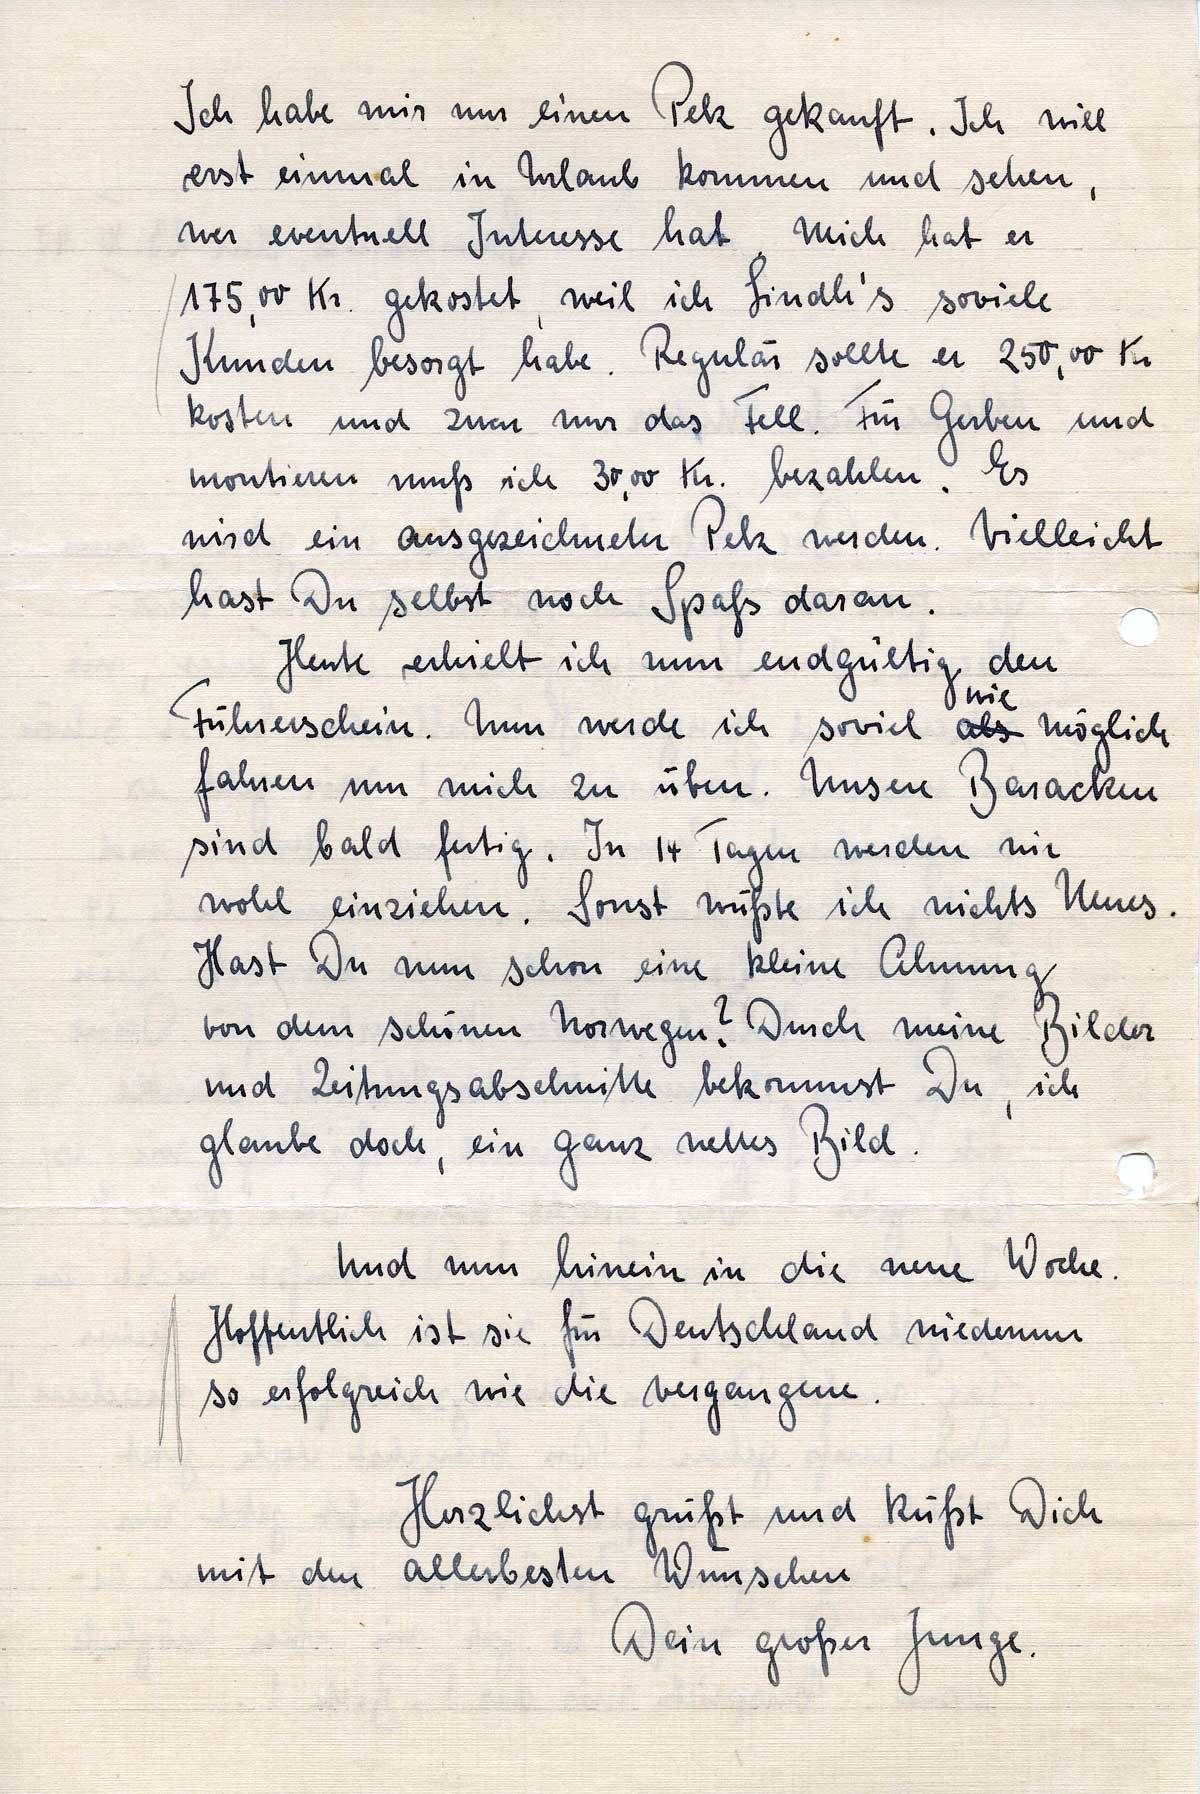 Ich habe mir nur einen Pelz gekauft. Ich will
erst einmal in Urlaub kommen und sehen,
wer eventuell Interesse hat. Mich hat er
175,00 Kr. gekostet, weil ich Lindh's soviele
Kunden besorgt habe. Regulär sollte er 250,00 Kr
kosten und zwar nur das Fell. Für Gerben und
montieren muß ich 30,00 Kr. bezahlen. Es
wird ein ausgezeichneter Pelz werden. Vielleicht
hast Du selbst noch Spaß daran.
Heute erhielt ich nun endgültig den
Führerschein. Nun werde ich soviel als wie möglich
fahren um mich zu üben. Unsere Baracken
sind bald fertig. In 14 Tagen werden wir
wohl einziehen. Sonst wüßte ich nichts Neues.
Hast Du nun schon eine kleine Ahnung
von dem schönen Norwegen? Durch meine Bilder
und Zeitungsabschnitte bekommst Du, ich
glaube doch, ein ganz nettes Bild.
Und nun hinein in die neue Woche.
Hoffentlich ist sie für Deutschland wiederum
so erfolgreich wie die vergangene.
Herzlichst grüßt und küßt Dich
mit den allerbesten Wünschen
Dein großer Junge.